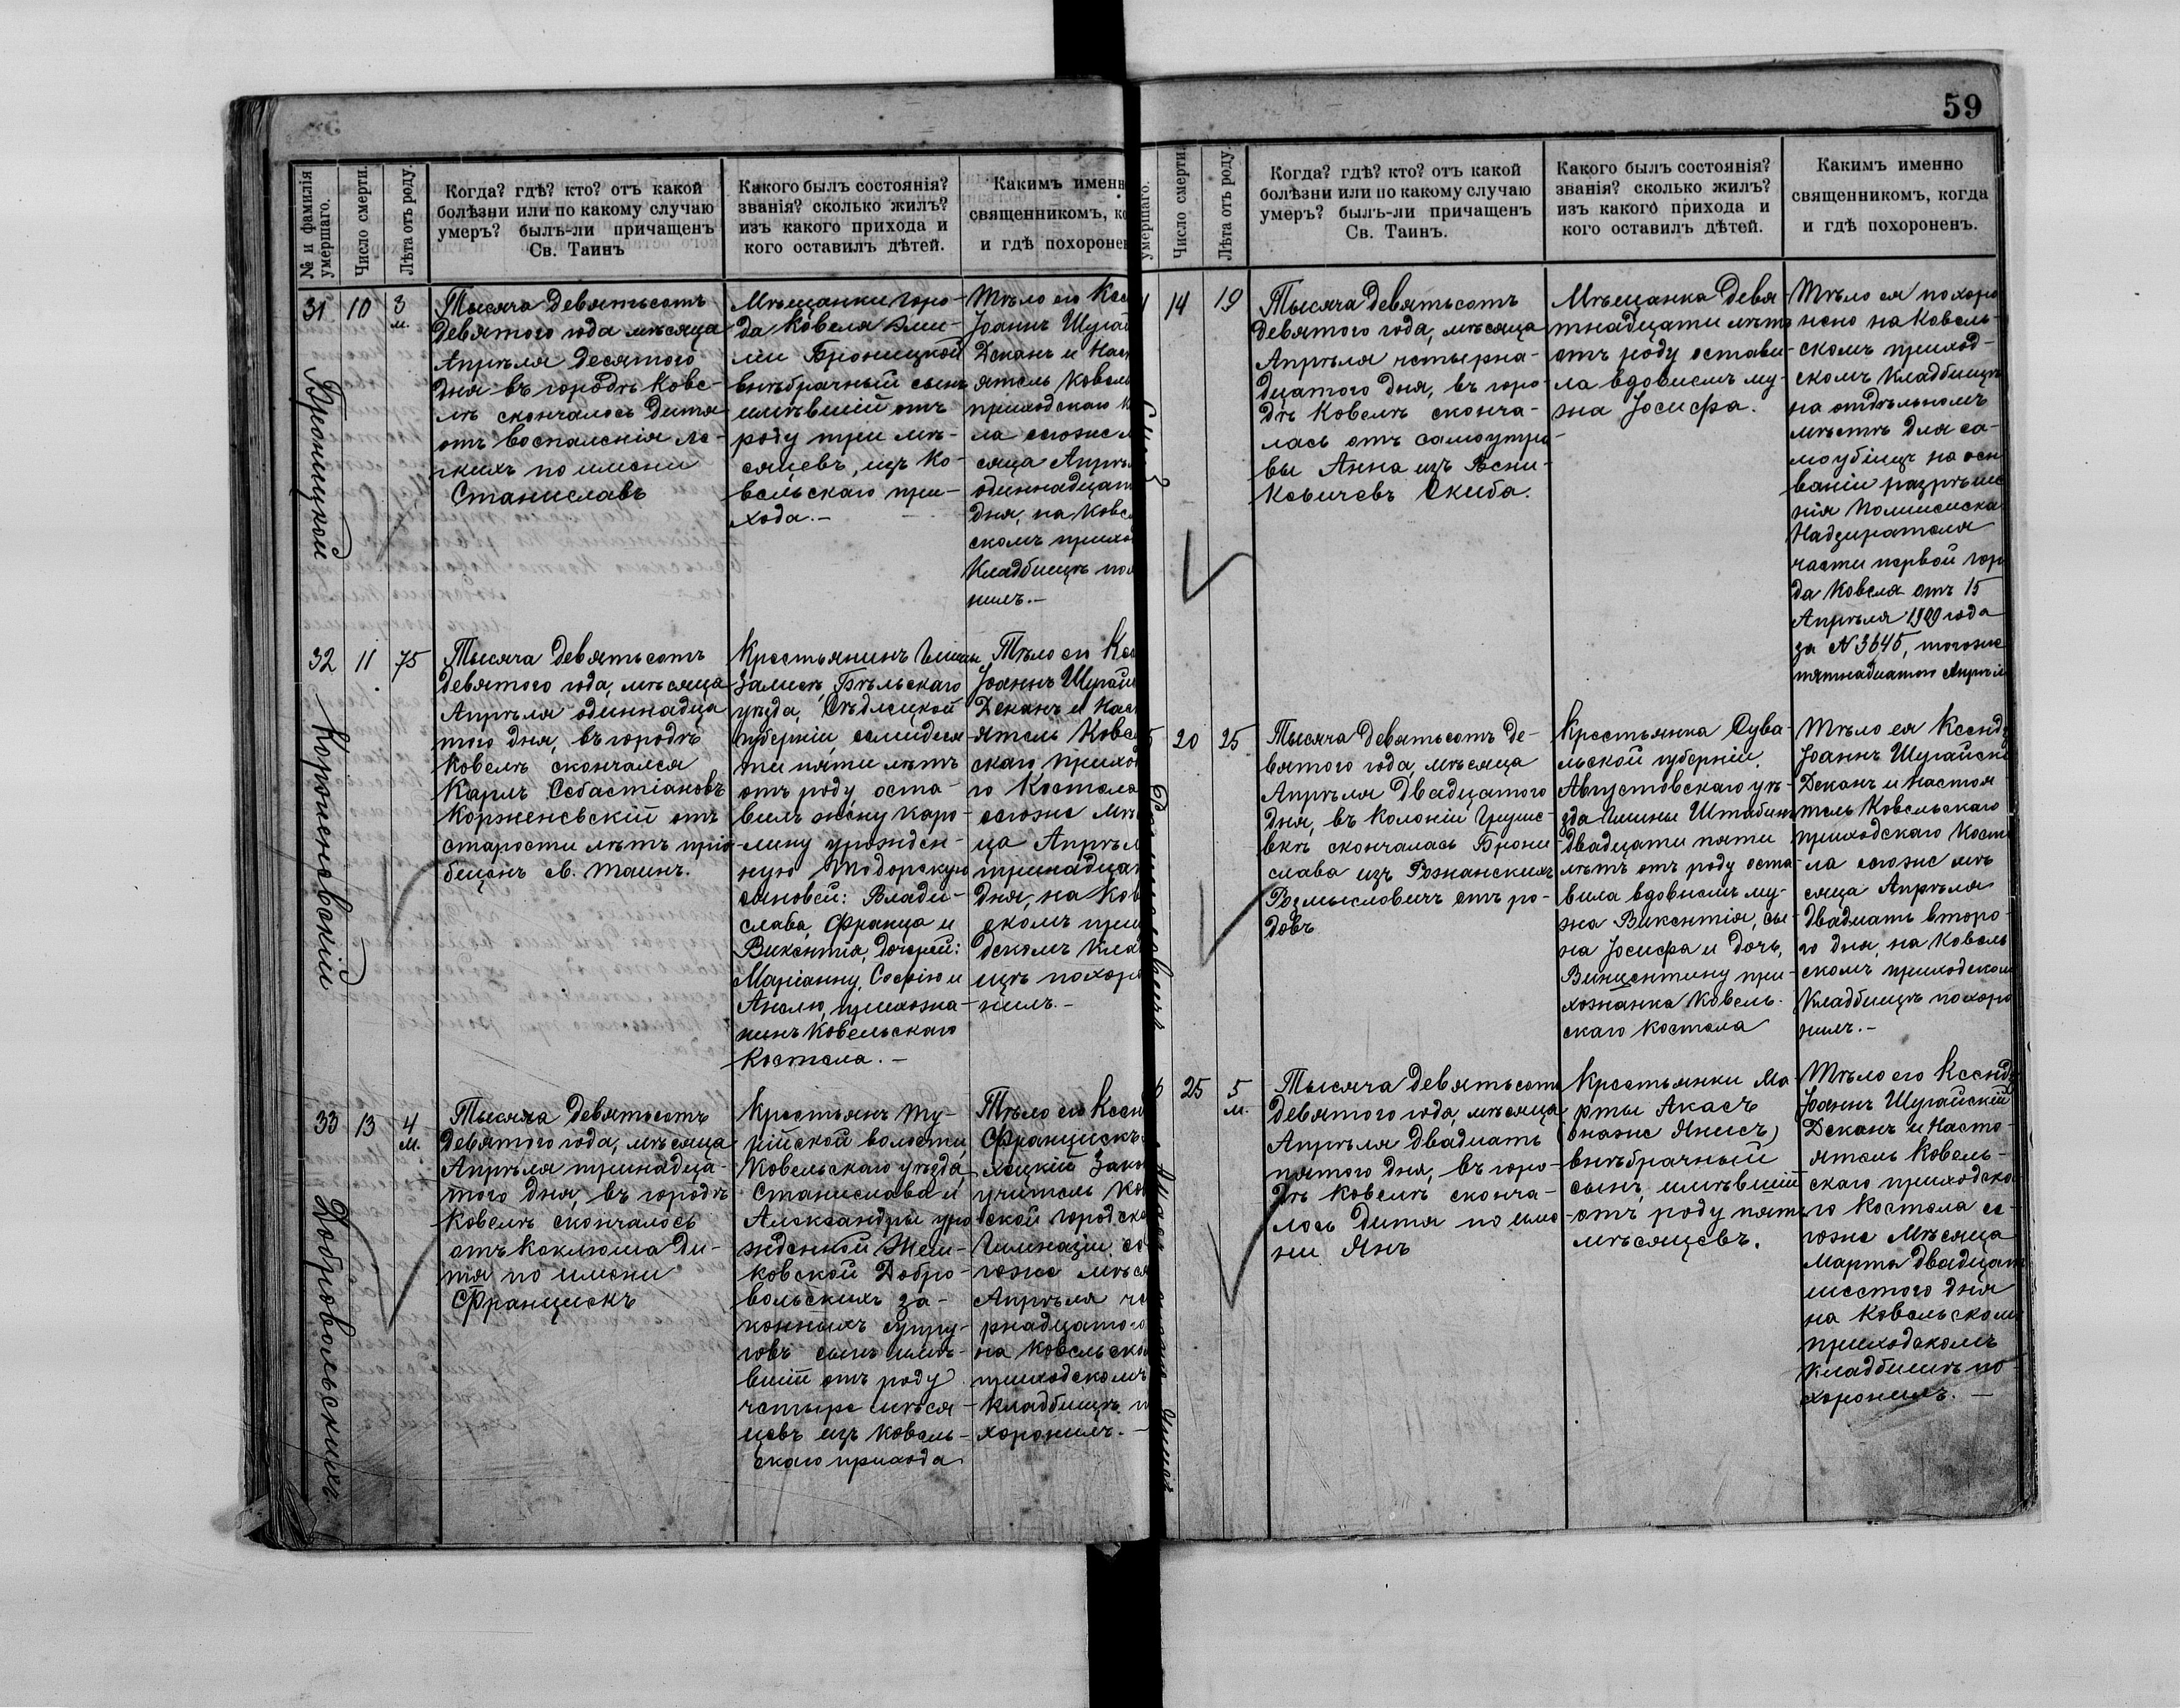 59
№ и фамилія умершаго.
Число смерти.
Лѣта отъ роду.
Когда? гдѣ? кто? отъ какой
болѣзни или по какому случаю
умеръ? былъ-ли причащенъ
Св. Таинъ
Какого былъ состоянія?
званія? сколько жилъ?
изъ какого прихода и
кого оставилъ дѣтей.
Какимъ именн
священникомъ, ко
и гдѣ похоронен
31
Броницкой
10
3
м.
Тысяча девятьсотъ
девятого года мѣсяца
Апрѣля десятого
дня въ городѣ Кове-
лѣ скончалось дитя
отъ воспаленія ле-
гкихъ по имени
Станиславъ
Мѣщанки горо-
да Ковеля Эми-
ліи Броницкой
внѣбрачный сынъ
имѣвшій отъ
роду три мѣ-
сяцевъ, изъ Ко-
вельскаго при-
хода.-
Тѣло его Ксе
Іоаннъ Шугай
Деканъ и Наст
ятель Ковель
приходскаго К
ла сегоже м
сяца Апрѣл
одиннадцат
дня, на Ковел
скомъ прихо
Кладбищѣ пох
нилъ.-
32
Корженевскій
11
75
Тысяча девятьсотъ
девятого года, мѣсяца
Апрѣля одиннадца
того дня, въ городѣ
Ковелѣ скончался
Карлъ Себастіановъ
Корженевскій отъ
старости лѣтъ прі
бщенъ св. таинъ.
Крестьянинъ Гмины
Залисе, Бѣльскаго
уѣзда, Сѣдлецкой
губерніи, семидеся
ти пяти лѣтъ
отъ роду оста-
вилъ жену Каро-
лину урожден-
ную Тодорскую
сыновей: Влади-
слава, Франца и
Викентія, дочерей:
Маріанну, Софію и
Анелю, прихожа-
нинъ Ковельскаго
Костела.-
Тѣло его Ксе
Іоаннъ Шугай
Деканъ и Наст
ятель Ковель
скаго прихо
го Костела
сегоже мѣ
ца Апрѣл
тринадцат
дня, на Ков
скомъ при
дскомъ Клад
щѣ похоро
нилъ.-
33
Добровольскихъ.
13
4
м.
Тысяча девятьсотъ
девятого года, мѣсяца
Апрѣля тринадца-
того дня, въ городѣ
Ковелѣ скончалось
отъ коклюша ди-
тя по имени
Францискъ
Крестьянъ Ту-
рійской волости,
Ковельскаго уѣзда,
Станислава и
Александры уро
жденной Жем-
ковской Добро-
вольскихъ за-
конныхъ супру-
говъ сынъ имѣ-
вшій отъ роду
четыре мѣся-
цевъ изъ Ковель-
скаго прихода
Тѣло его Ксен
Францискъ
хоцкій Зако
учитель Ков
ской городско
Гимназіи се
гоже мѣся
Апрѣля че
рнадцатого
на Ковельско
приходскомъ
Кладбищѣ п
хоронилъ.-
умершаго.
Число смерти.
Лѣта отъ роду.
Когда? гдѣ? кто? отъ какой
болѣзни или по какому случаю
умеръ? былъ-ли причащенъ
Св. Таинъ.
Какого былъ состоянія?
званія? сколько жилъ?
изъ какого прихода и
кого оставилъ дѣтей.
Какимъ именно
священникомъ, когда
и гдѣ похороненъ.
14
19
Тысяча девятьсотъ
девятого года, мѣсяца
Апрѣля четырна-
дцатого дня, въ горо-
дѣ Ковелѣ сконча-
лась отъ самоутра-
вы Анна изъ Ясни-
кевичевъ Скиба.
Мѣщанка девя
тнадцати лѣтъ
отъ роду остави-
ла вдовцемъ му-
жа Іосифа.
Тѣло ея похоро
нено на Ковель-
скомъ приход-
скомъ Кладбищѣ
на отдѣльномъ
мѣстѣ для са-
моубійцъ на осн
ваніи разрѣше
нія Полицейска
Надзирателя
части первой гор
да Ковеля отъ 15
Апрѣля 1909 года
за N 3645, тогоже
пятнадцатого Апрѣл
20
25
Тысяча девятьсотъ де-
вятого года, мѣсяца
Апрѣля двадцатого
дня, въ колоніи
скончалась Брони
слава изъ Рожанскихъ
Розмысловичъ отъ ро-
довъ
Крестьянка Сува-
льской губерніи,
Августовскаго уѣ-
зда Гмины Штабинъ
двадцати пяти
лѣтъ отъ роду оста-
вила вдовцемъ му-
жа Викентія, сы-
на Іосифа и дочь,
Винцентину при-
хожанка Ковель-
скаго Костела
Тѣло ея Ксенд
Іоаннъ Шугайск
Деканъ и Настоя
тель Ковельскаго
приходскаго Косте
ла сегоже мѣ
сяца Апрѣля
двадцать второ-
го дня, на Ковель
скомъ приходском
Кладбищѣ похоро
нилъ.-
25
5
м.
Тысяча девятьсотъ
девятого года, мѣсяца
Апрѣля двадцать
пятого дня, въ горо-
дѣ Ковелѣ сконча-
лось дитя по име
ни Янъ
Крестьянки Ма
рты Акасъ
(онаже Янисъ)
внѣбрачный
сынъ, имѣвшій
отъ роду пять
мѣсяцевъ.
Тѣло его Ксенд
Іоаннъ Шугайскій
Деканъ и Насто-
ятель Ковель-
скаго приходско
го Костела се-
гоже Мѣсяца
Марта двадцат
шестого дня
на Ковельском
приходскомъ
Кладбищѣ по-
хоронилъ.-